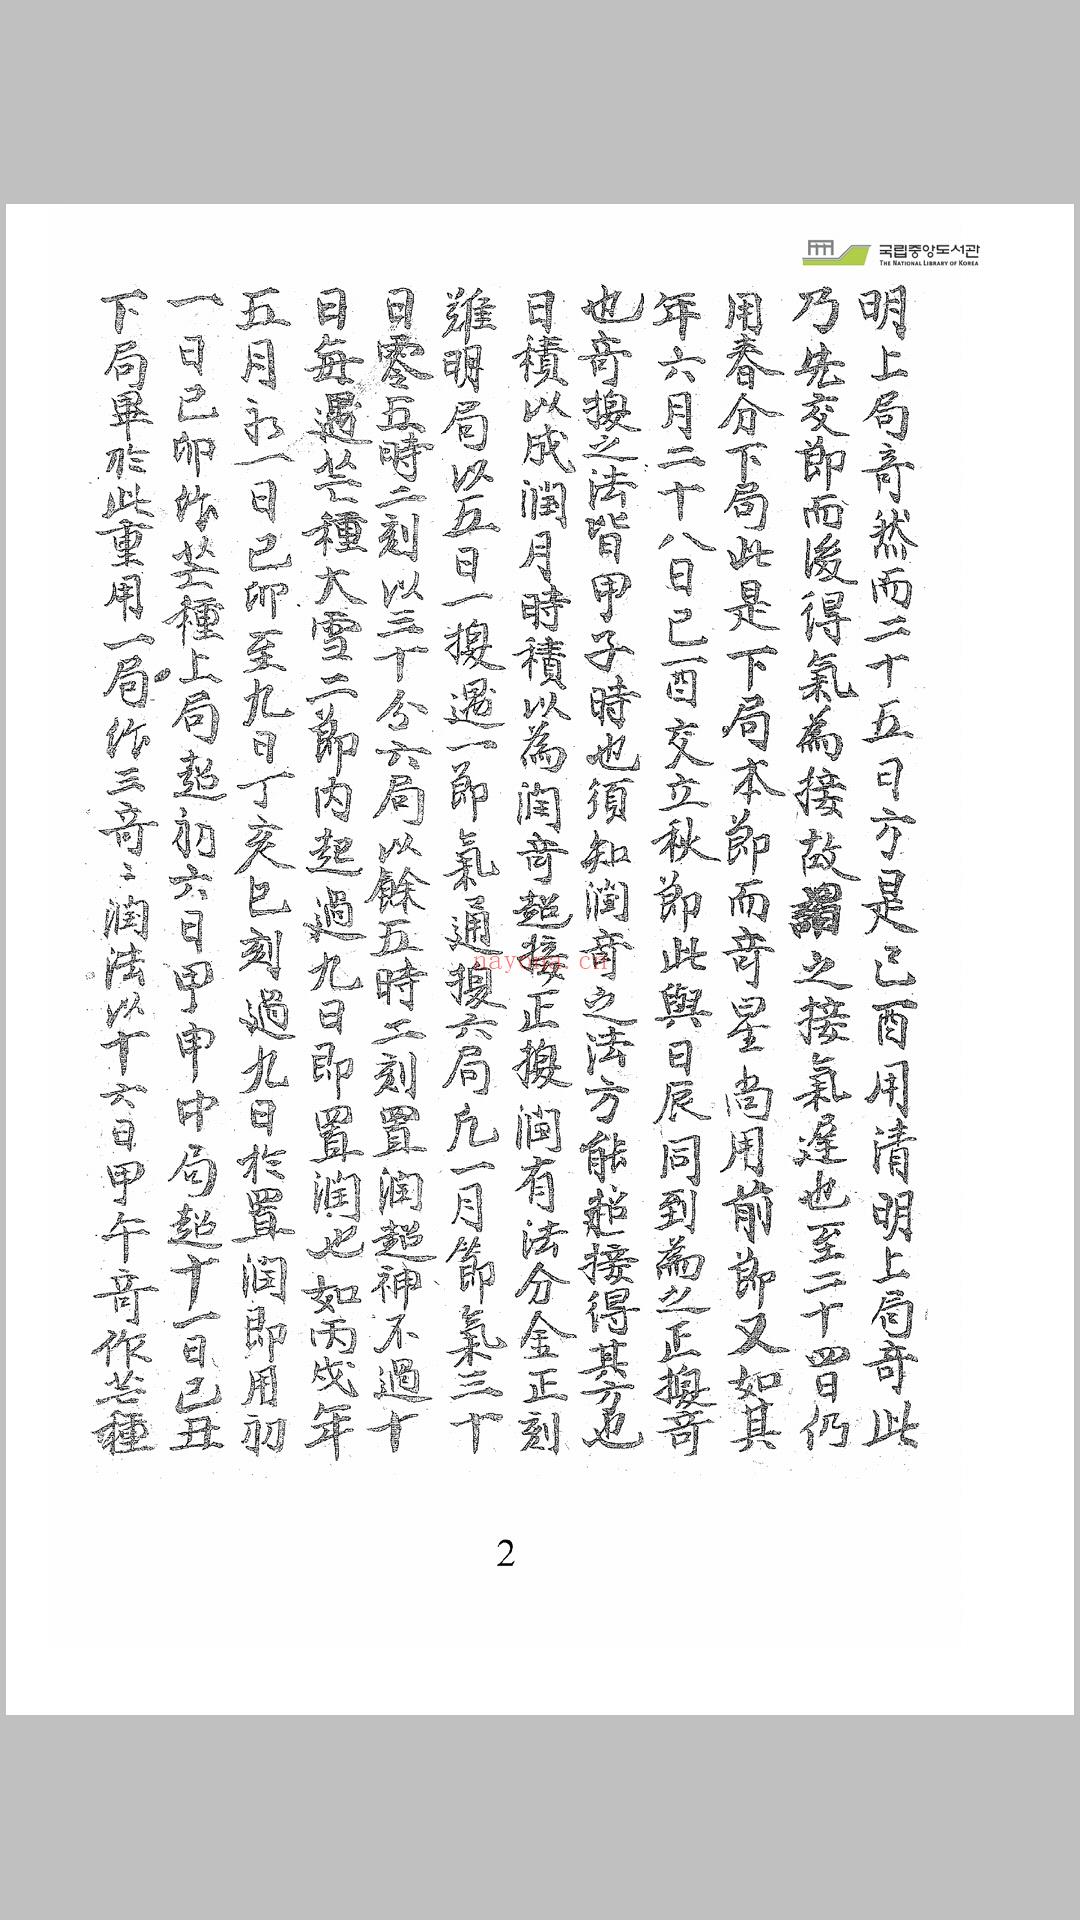 국립중앙도서관
THE NATIONAL LIBRARY OF KOREA
明上局竒然而二十五日方是己酉用清明上局竒此
乃先交節而後得氣為接故謂之接氣遲也至二十四日仍
用春分下局此是下局本節而竒星尚用前節又如其
年六月二十八日己酉交立秋節此與日辰同到為之正換竒
也竒換之法皆甲子時也須知潤竒之法方能超接得其方也
日積以成潤月時積以為潤竒超接正換潤有法分金正刻
難明局以五日一換遇一節氣通換六局凡一月節氣三十
日零五時二刻以三十分六局以餘五時二刻置潤超神不過十
日每遇芒種大雪二節內起過九日即置潤也如丙戌年
五月初一日己卯至九日丁亥巳刻過九日於置潤即用初
一日己卯作芒種上局超初六日甲申中局超十一日己丑
下局畢於此重用一局作三竒〻潤法以十六日甲午竒作芒種
nayona.cn
2